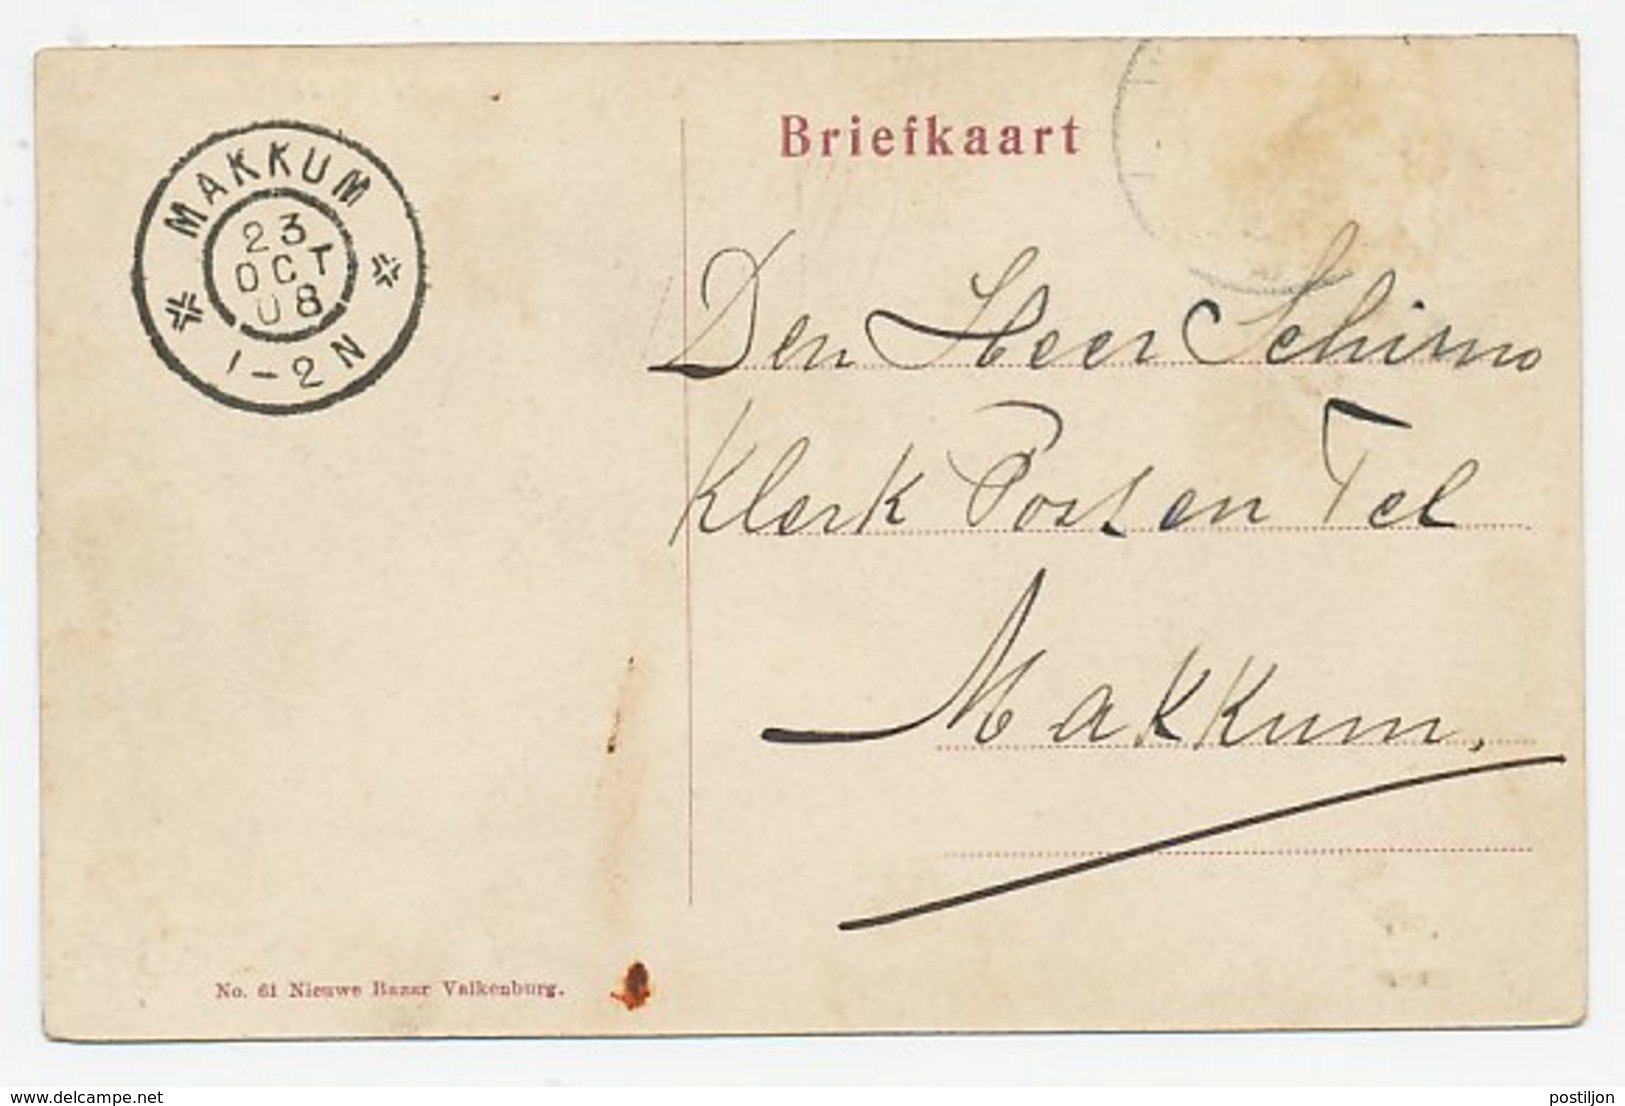 MAKKUM
23
OCT
08
1-2N
Briefkaart
Den Heer Schirmo
Klerk Post en Tel
Makkum.
No. 61 Nieuwe Bazar Valkenburg.
www.delcampe.net
postiljon